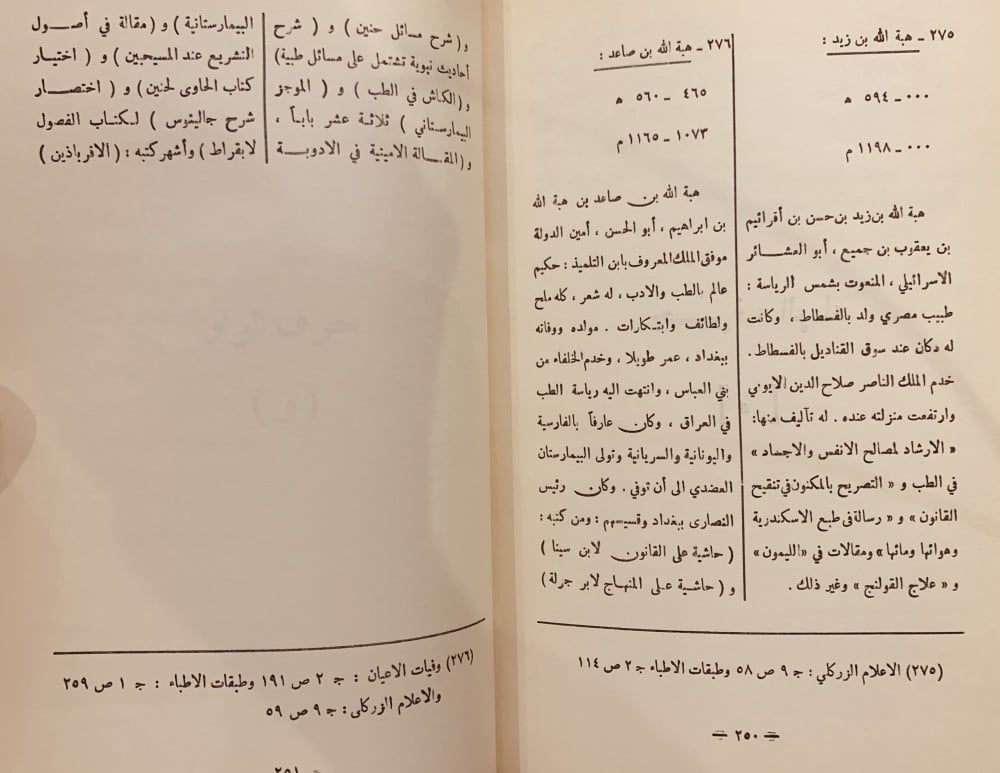 ٢٧٥ ـ هبة الله بن زيد :
٠٠٠ ـ ٥٩٤ ﻫ
٠٠٠ ـ ١١٩٨ م
هبة الله بن زيد بن حسن بن أفرائيم
بن يعقوب بن جميع ، أبو العشائر
الاسرائيلي ، المنعوت بشمس الرياسة :
طبيب مصري ولد بالفسطاط ، وكانت
له دكان عند سوق القناديل بالفسطاط .
خدم الملك الناصر صلاح الدين الايوبي
وارتفعت منزلته عنده . له تآليف منها :
« الارشاد لمصالح الانفس والاجساد »
في الطب و « التصريح بالمكنون في تنقيح
القانون » و « رسالة في طبع الاسكندرية
وهوائها ومائها » ومقالات في « الليمون »
و « علاج القولنج » وغير ذلك .
٢٧٦ ـ هبة الله بن صاعد :
٤٦٥ ـ ٥٦٠ ﻫ
١٠٧٣ ـ ١١٦٥ م
هبة الله بن صاعد بن هبة الله
بن ابراهيم ، أبو الحسن ، أمين الدولة
موفق الملك المعروف بابن التلميذ : حكيم
عالم بالطب والادب ، له شعر ، كله ملح
ولطائف وابتكارات . مولده ووفاته
ببغداد ، عمر طويلا ، وخدم الخلفاء من
بني العباس ، وانتهت اليه رياسة الطب
في العراق ، وكان عارفاً بالفارسية
واليونانية والسريانية وتولى البيمارستان
العضدي الى أن توفي . وكان رئيس
النصارى ببغداد وقسيسهم : ومن كتبه :
( حاشية على القانون لابن سينا )
و ( حاشية على المنهاج لابن جزلة )
(٢٧٥) الاعلام الزركلي : ج ٩ ص ٥٨ وطبقات الاطباء ج ٢ ص ١١٤
= ٢٥٠ =
و( شرح مسائل حنين ) و ( شرح
أحاديث نبوية تشتمل على مسائل طبية)
و(الكناش في الطب ) و ( الموجز
البيمارستاني ) ثلاثة عشر باباً ،
و(المقـالة الامينية في الادوية
البيمارستانية ) و ( مقالة في أصول
التشريع عند المسيحيين ) و ( اختيار
كتاب الحاوى لحنين ) و ( اختصار
شرح جالينوس ) لكتاب الفصول
لابقراط ) وأشهر كتبه : ( الاقرباذين )
(٢٧٦) وفيات الاعيان : ج ٢ ص ١٩١ وطبقات الاطباء : ج ١ ص ٢٥٩
والاعلام الزركلي : ج ٩ ص ٥٩
= ٢٥١ =